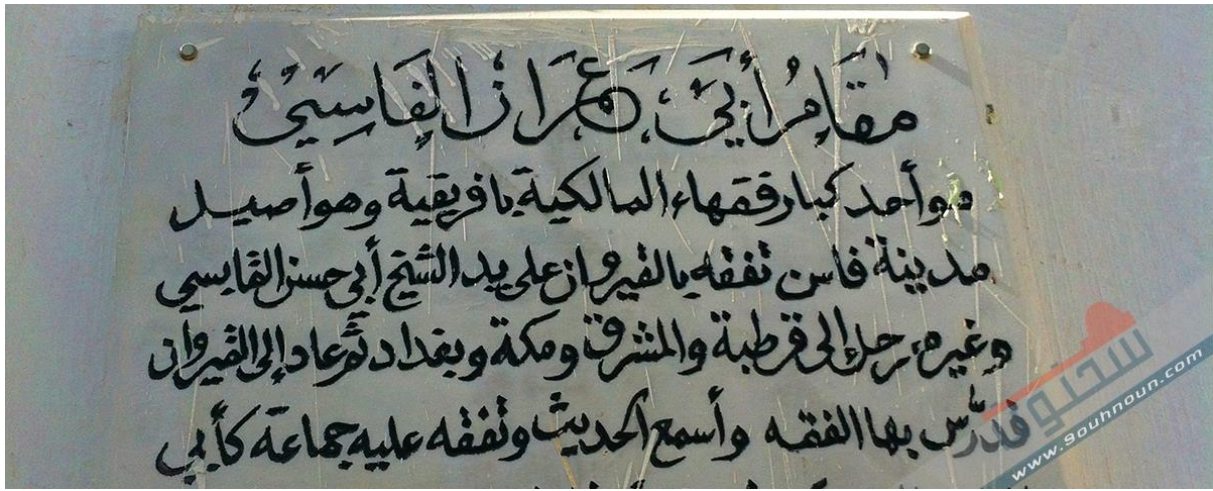 مقام أبي عمران الفاسي
هو أحد كبار فقهاء المالكية بافريقية وهو أصيل
مدينة فاس تفقه بالقيروان على يد الشيخ أبي حسن القابسي
وغيره رحل إلى قرطبة والمشرق ومكة وبغداد ثم عاد إلى القيروان
فدرّس بها الفقه وأسمع الحديث وتفقه عليه جماعة كأبي
سحنون
www.souhnoun.com